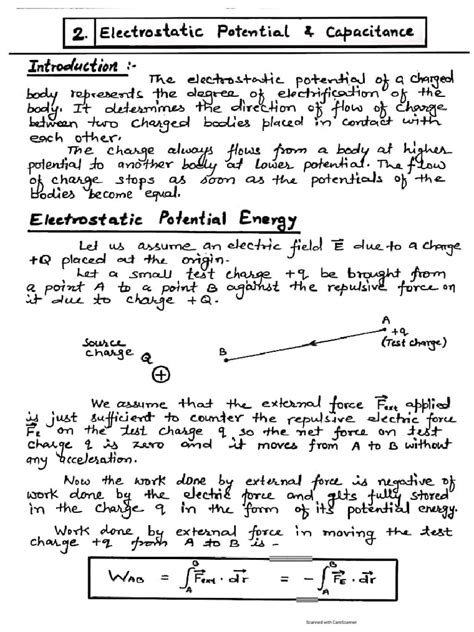 2. Electrostatic Potential & Capacitance
Introduction :-
The electrostatic potential of a charged
body represents the degree of electrification of the
body. It determines the direction of flow of charge
between two charged bodies placed in contact with
each other.
The charge always flows from a body at higher
potential to another body at lower potential. The flow
of charge stops as soon as the potentials of the
bodies become equal.
Electrostatic Potential Energy
Let us assume an electric field E⃗ due to a charge
+Q placed at the origin.
Let a small test charge +q be brought from
a point A to a point B against the repulsive force on
it due to charge +Q.
A
+q
(Test charge)
Source
charge Q
B
+
We assume that the external force F⃗ext applied
is just sufficient to counter the repulsive electric force
F⃗E on the test charge q so the net force on test
charge q is zero and it moves from A to B without
any acceleration.
Now the work done by external force is negative of
work done by the electric force and gets fully stored
in the charge q in the form of its potential energy.
Work done by external force in moving the test
charge +q from A to B is -
W_AB = ∫_A^B F⃗ext · d⃗r = - ∫_A^B F⃗E · d⃗r
Scanned with CamScanner